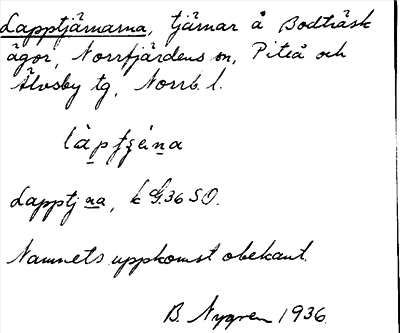 Lapptjärnarna, tjärnar å Bodträsk
ägor, Norrfjärdens sn, Piteå och
Älvsby tg, Norrb. l.
Lapptj aa, k G.36 SO.
Namnets uppkomst obekant.
B. Nygren 1936